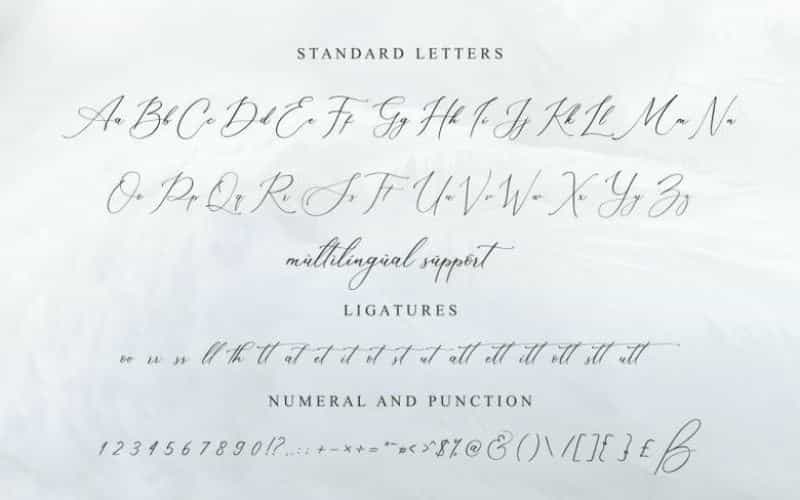 STANDARD LETTERS
Aa Bb Cc Dd Ee Ff Gg Hh Ii Jj Kk Ll Mm Nn
Oo Pp Qq Rr Ss Tt Uu Vv Ww Xx Yy Zz
mùltilingùal sùppört
LIGATURES
oo rr ss ll th tt at et it ot st ut att ett itt ott stt utt
NUMERAL AND PUNCTION
1 2 3 4 5 6 7 8 9 0 ! ? . , : ; + - × + = " ~ < > $ % @ & ( ) \ / [ ] { } £ ß